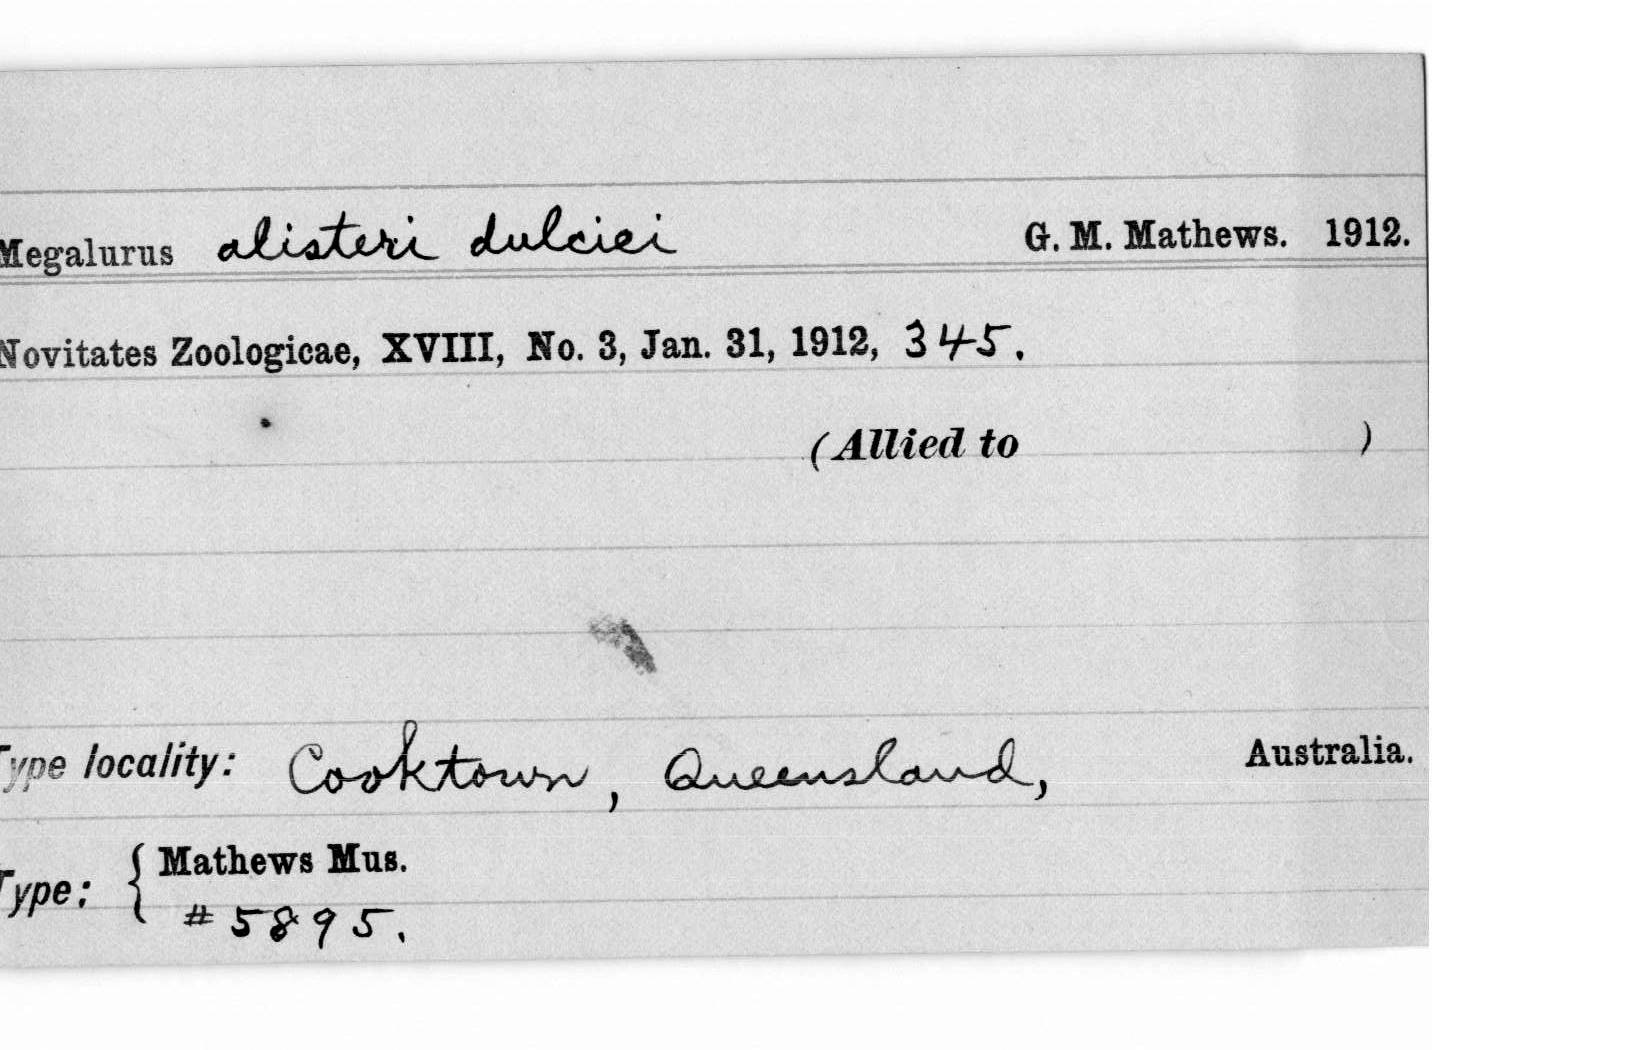 Megalurus alisteri dulciei G. M. Mathews. 1912.
Novitates Zoologicae, XVIII, No. 3, Jan. 31, 1912, 345.
(Allied to )
Type locality: Cooktown, Queensland, Australia.
Type: { Mathews Mus.
#5895.